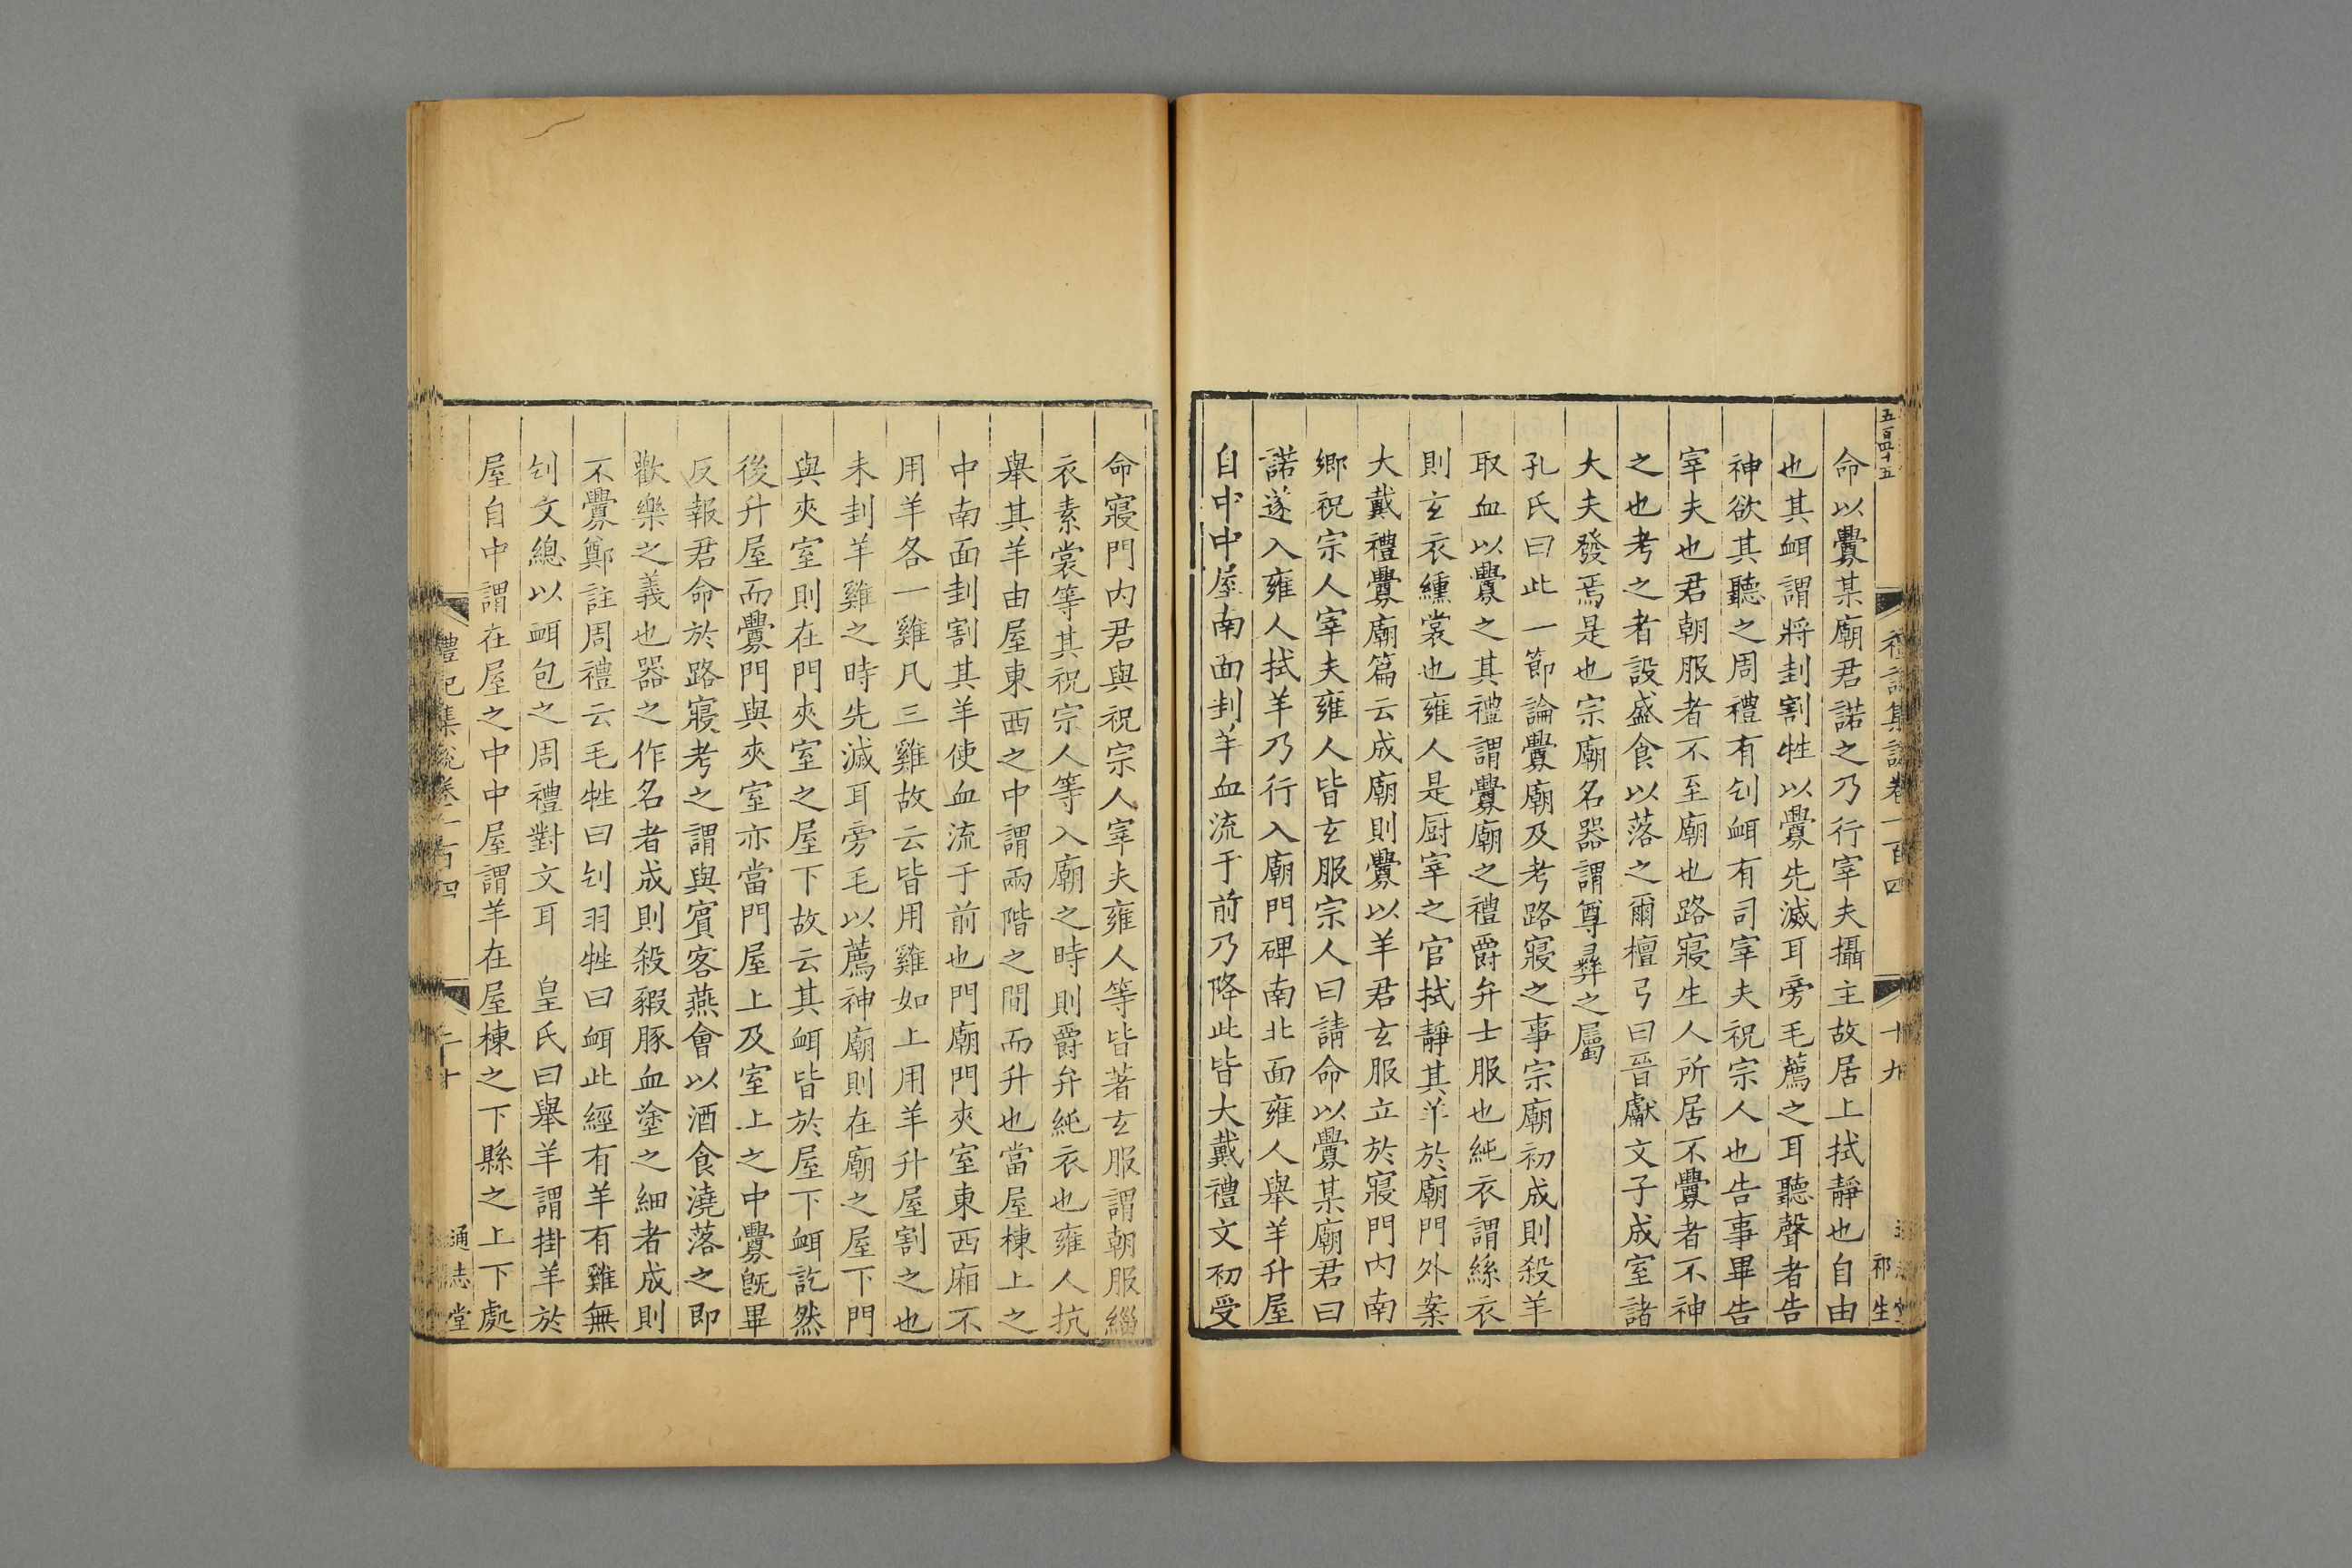 五百四十五
禮記集說卷一百四
十九
祁生
命以釁某廟君諾之乃行宰夫攝主故居上拭靜也自由
也其衈謂將刲割牲以釁先滅耳旁毛薦之耳聽聲者告
神欲其聽之周禮有刉衈有司宰夫祝宗人也告事畢告
宰夫也君朝服者不至廟也路寢生人所居不釁者不神
之也考之者設盛食以落之爾檀弓曰晉獻文子成室諸
大夫發焉是也宗廟名器謂尊彞之屬
孔氏曰此一節論釁廟及考路寢之事宗廟初成則殺羊
取血以釁之其禮謂釁廟之禮爵弁士服也純衣謂絲衣
則玄衣纁裳也雍人是廚宰之官拭靜其羊於廟門外案
大戴禮釁廟篇云成廟則釁以羊君玄服立於寢門內南
鄉祝宗人宰夫雍人皆玄服宗人曰請命以釁某廟君曰
諾遂入雍人拭羊乃行入廟門碑南北面雍人舉羊升屋
自中中屋南面刲羊血流于前乃降此皆大戴禮文初受
命寢門內君與祝宗人宰夫雍人等皆著玄服謂朝服緇
衣素裳等其祝宗人等入廟之時則爵弁純衣也雍人抗
舉其羊由屋東西之中謂兩階之間而升也當屋棟上之
中南面刲割其羊使血流于前也門廟門夾室東西廂不
用羊各一雞凡三雞故云皆用雞如上用羊升屋割之也
未刲羊雞之時先滅耳旁毛以薦神廟則在廟之屋下門
與夾室則在門夾室之屋下故云其衈皆於屋下衈訖然
後升屋而釁門與夾室亦當門屋上及室上之中釁旣畢
反報君命於路寢考之謂與賓客燕會以酒食澆落之即
歡樂之義也器之作名者成則殺豭豚血塗之細者成則
不釁鄭註周禮云毛牲曰刉羽牲曰衈此經有羊有雞無
刉文總以衈包之周禮對文耳 皇氏曰舉羊謂掛羊於
屋自中謂在屋之中中屋謂羊在屋棟之下縣之上下處
禮記集說卷一百四
二十
通志堂